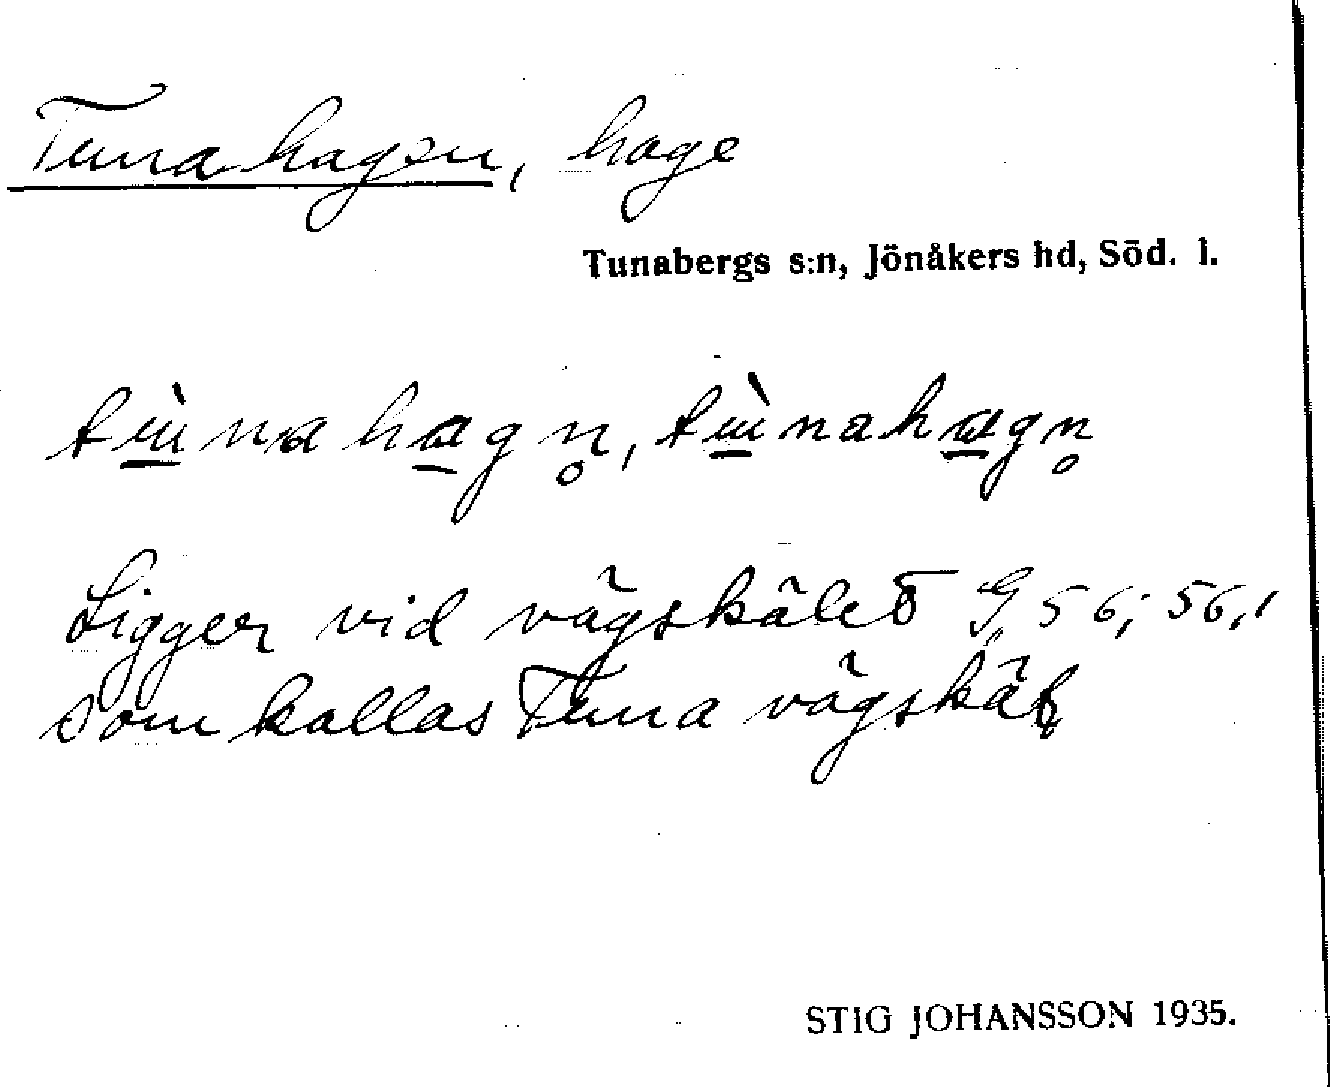 Tunahagen, hage
Tunabergs s:n, Jönåkers hd, Söd. l.
tùnahagn̥, tùnahagn̥
Ligger vid vägskälet G 56; 56,1
som kallas Tuna vägskäl
STIG JOHANSSON 1935.